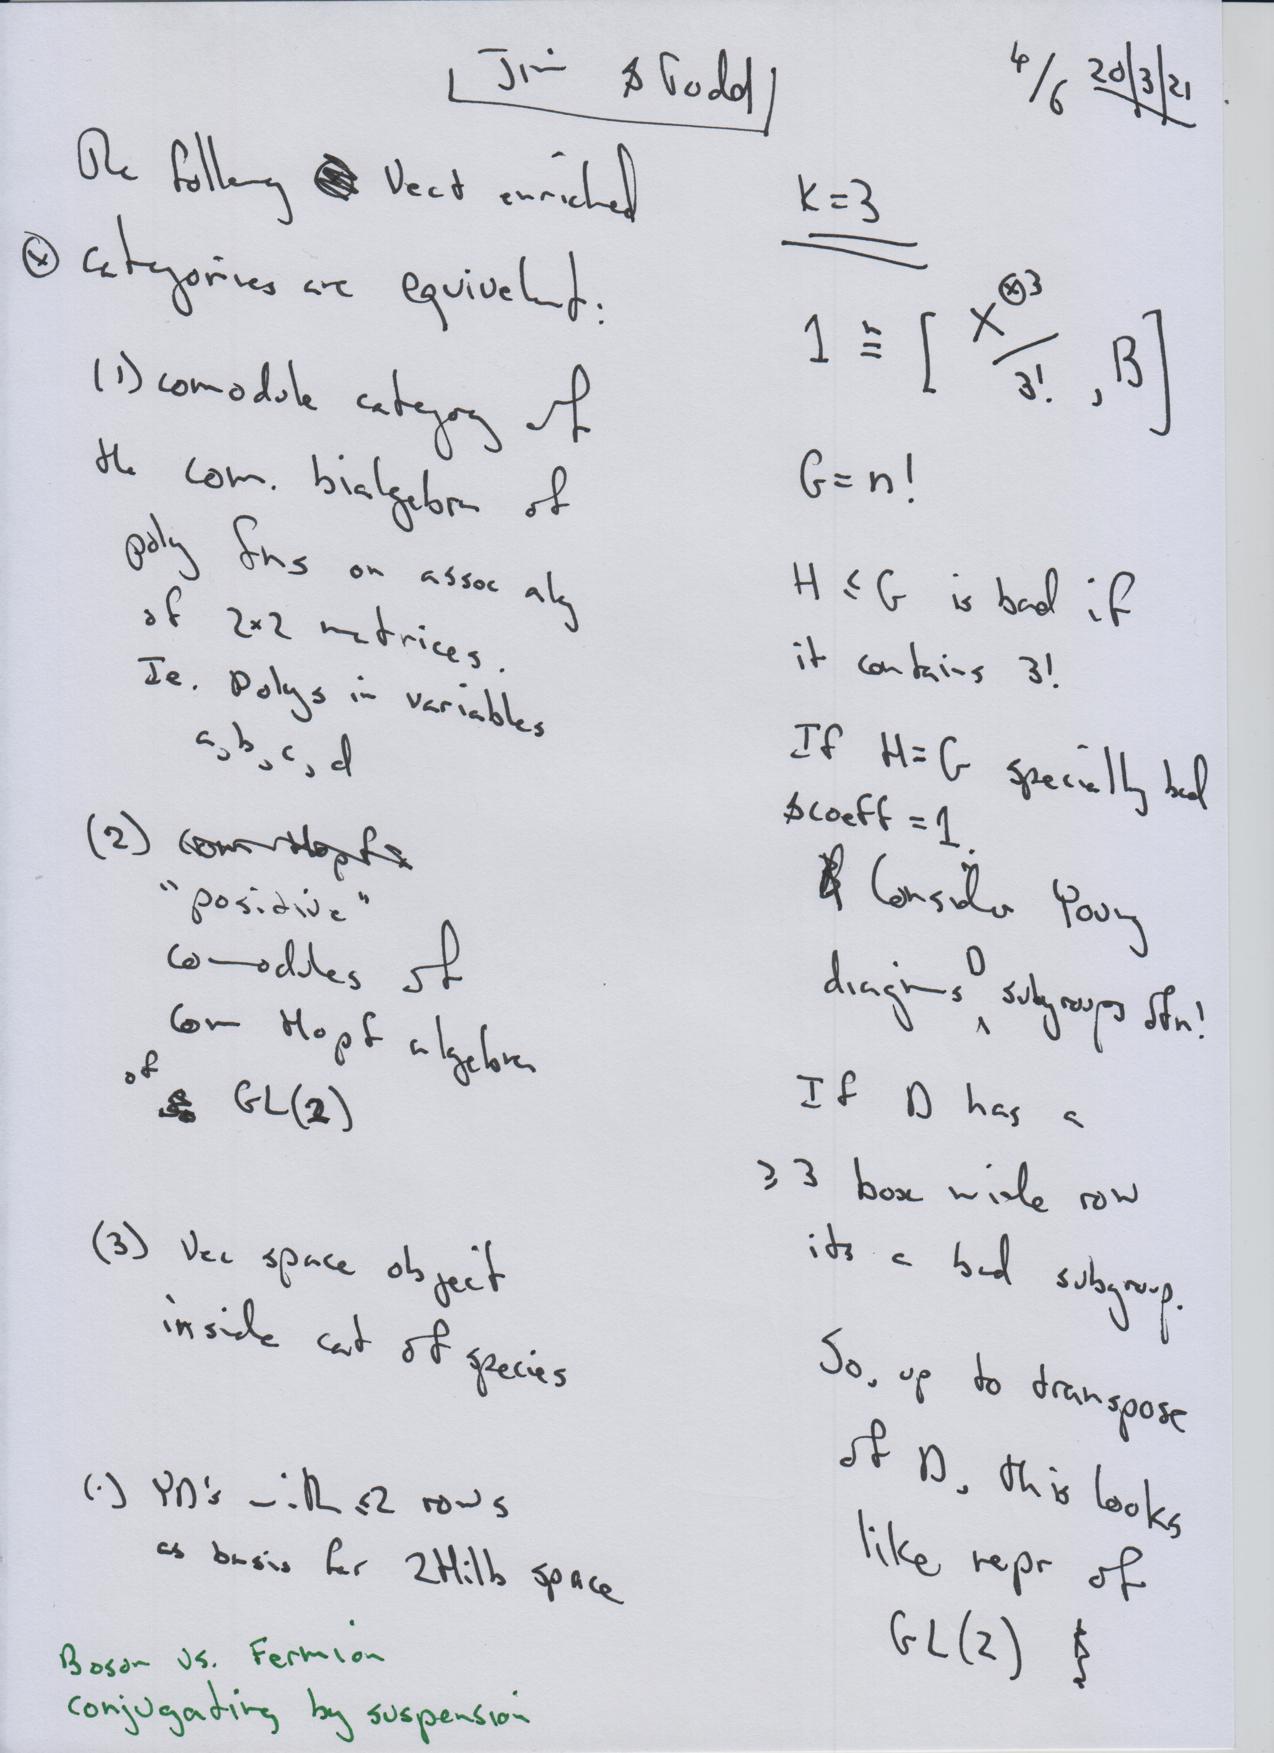 Jim & Todd
4/6 20/3/21
The following Vect enriched
⊗ categories are equivalent:
(1) comodule category of
the com. bialgebra of
poly fns on assoc alg
of 2×2 matrices.
Ie. polys in variables
a, b, c, d
(2) com Hopf
"positive"
comodules of
com Hopf algebra
of GL(2)
(3) Vec space object
inside cat of species
(.) YD's with ≤2 rows
as basis for 2Hilb space
Boson vs. Fermion
conjugating by suspension
K=3
1 ≅ [ X^⊗3 / 3! , B ]
G = n!
H ≤ G is bad if
it contains 3!
If H=G specially bad
& coeff = 1.
Consider Young
diagrams D subgroups of n!
If D has a
≥ 3 box wide row
its a bad subgroup.
So, up to transpose
of D, this looks
like repr of
GL(2)